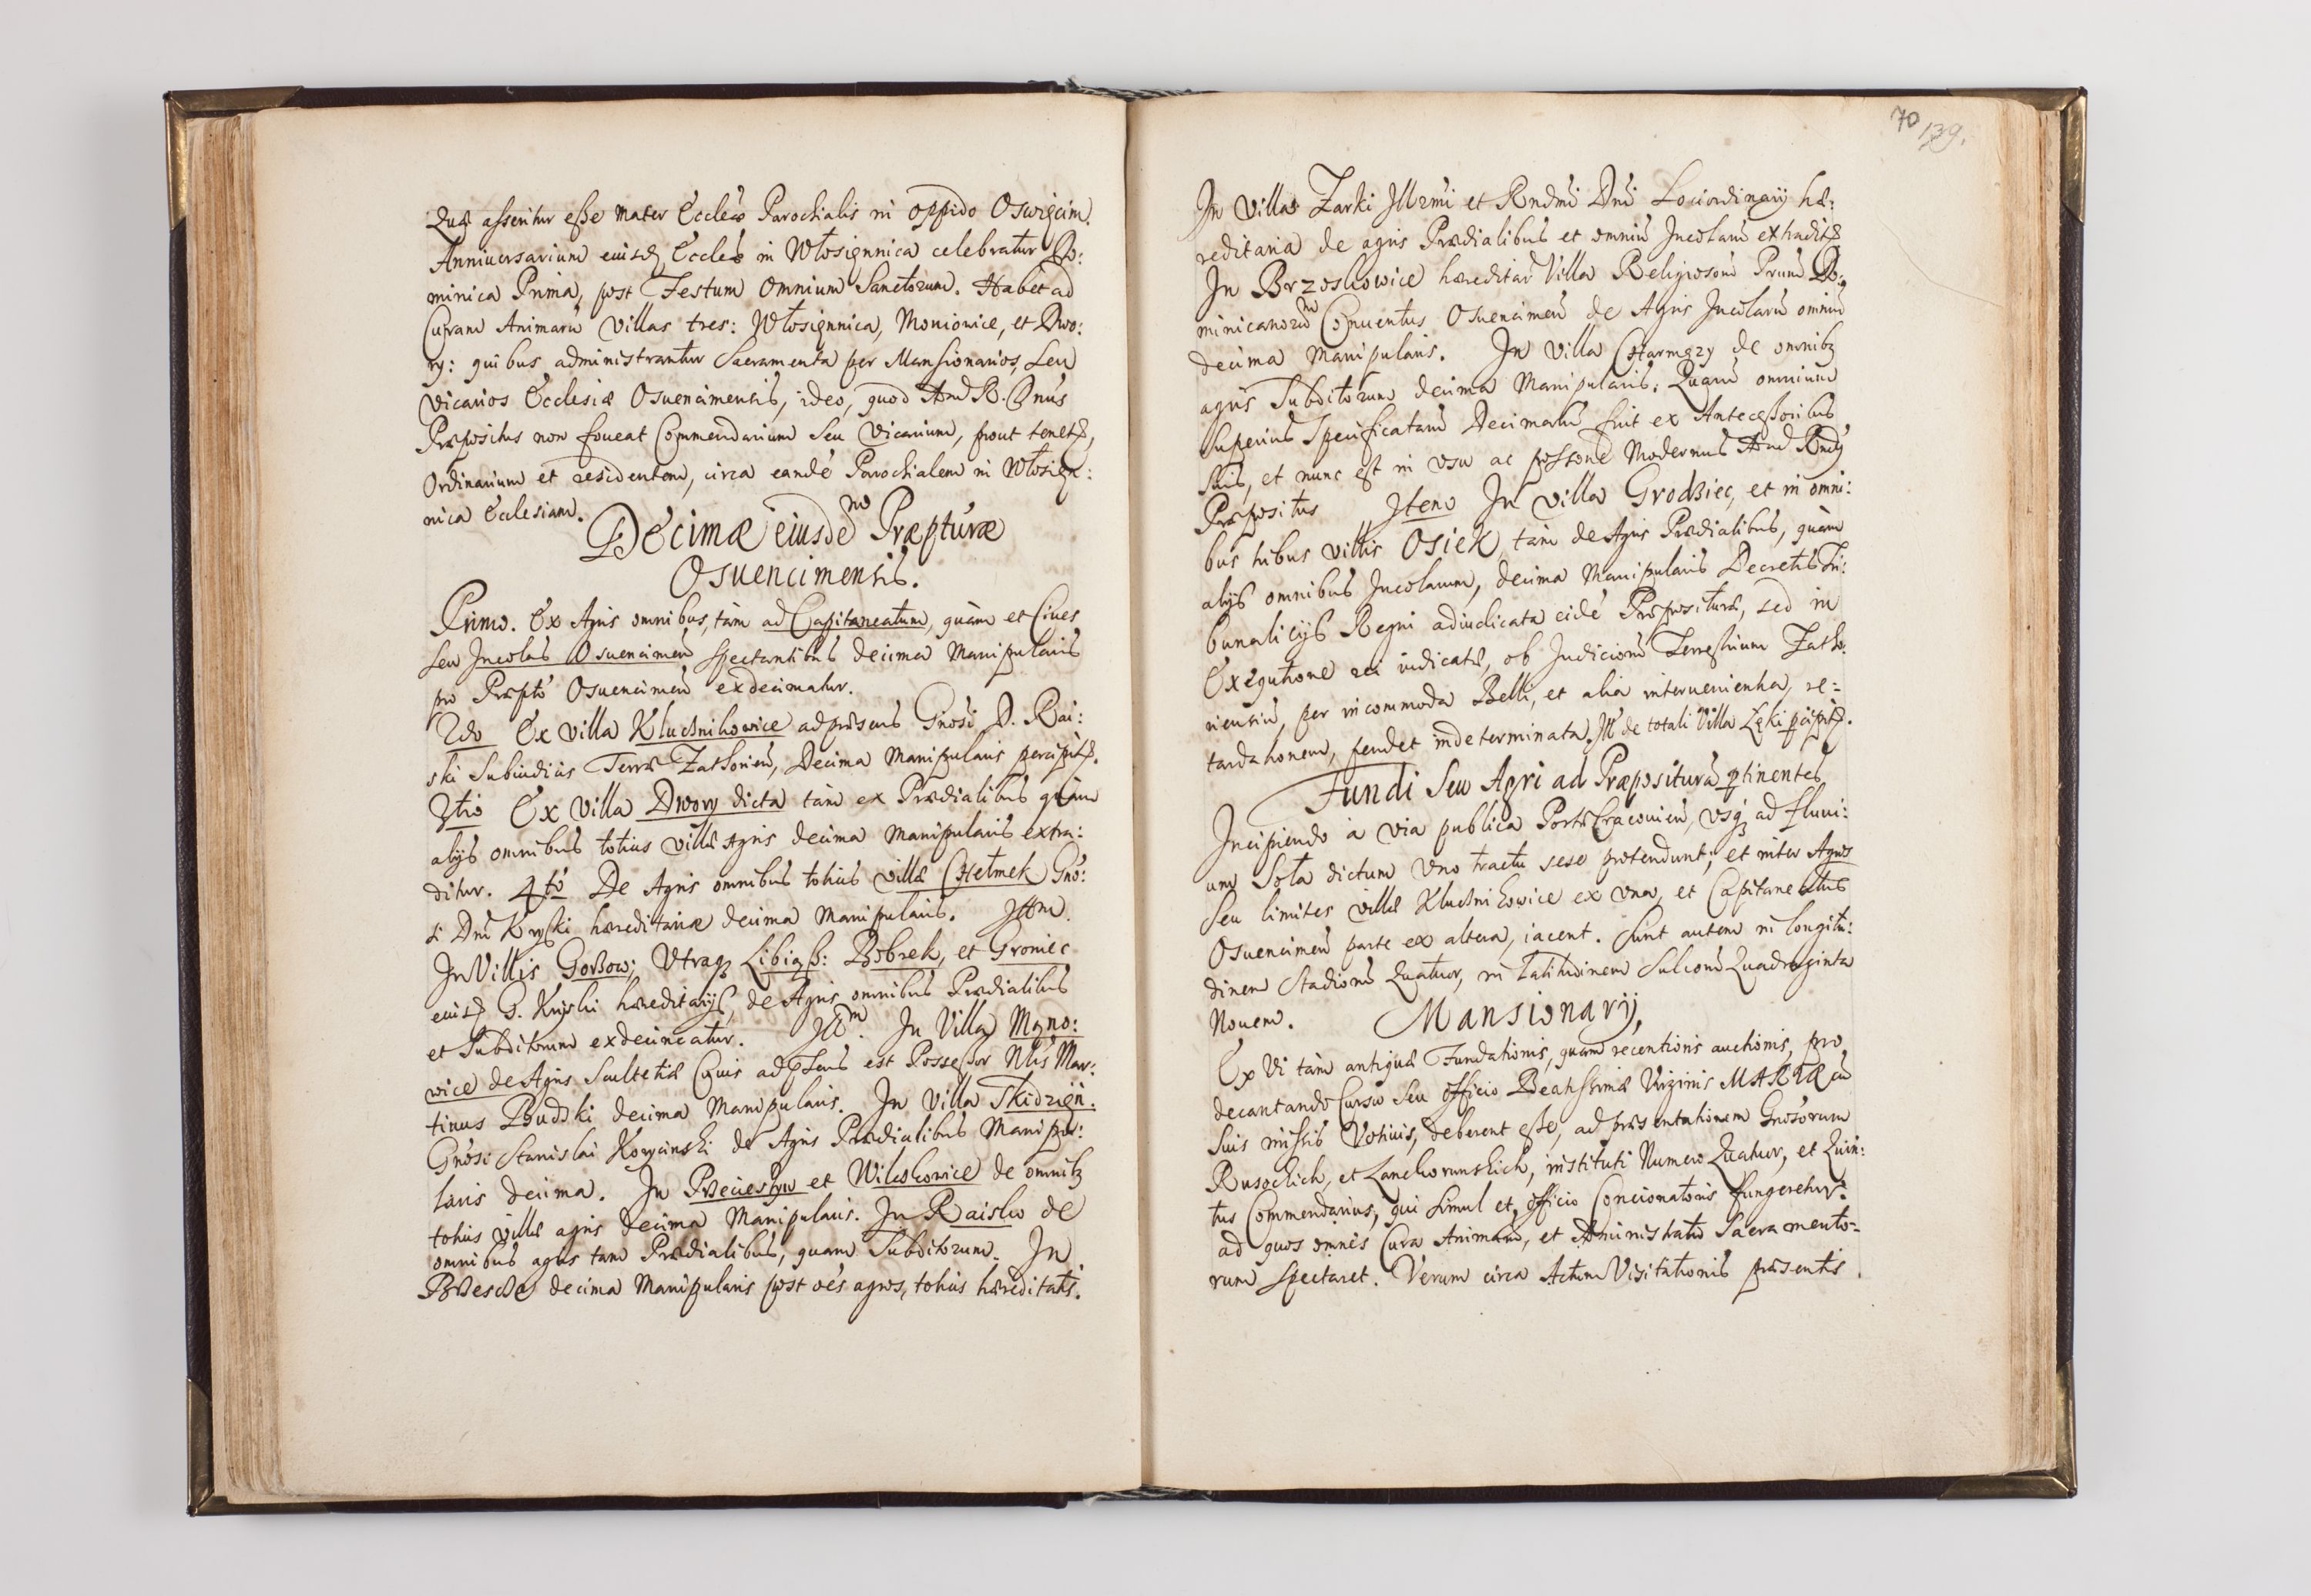 Quæ asseritur esse Mater Eccles Parochialis in oppido Oswięcim.
Anniuersarium eiusdē Eccles in Włosięnnica celebratur Do:
minica Prima, post Festum Omnium Sanctorum. Habet ad
Curam Animarū Villas tres: Włosięnnica, Moniowice, et Dwo:
ry: quibus administrantur Sacramenta per Mansionarios, Seu
Vicarios Ecclesiæ Osuencimensis, ideo, quod Amd R. Dnus
Præpositus non foueat Commendarium Seu Vicarium, prout tenet,
Ordinarium et residentem, circa eandē Parochialem in Włosięn:
nica Ecclesiam.
Decimæ eiusdem Præpturæ
Osuencimensis.
Primo. Ex Agris omnibus, tàm ad Capitaneatum, quàm et Ciues
Seu Incolas Osuencimeñ Spectantibus decima Manipularis
pro Præpto Osuencimeñ exdecimatur.
2do Ex Villa Klucznikowice ad præsens Gnosi D. Rai:
ski Subiudicis Terræ Zathorieñ, Decima Manipularis percipit.
3tio Ex Villa Dwory dicta tàm ex Prædialibus quàm
alijs omnibus totius villæ Agris decima Manipularis extra:
ditur. 4to De Agris omnibus totius villæ Chełmek Gno:
si Dni Kryski hæreditariæ decima Manipularis. Ittm.
In Villis Gorzow; Vtraq Libiąz: Bobrek, et Gromiec
eiusd G. Kryski hæreditarijs, de Agris omnibus Prædialibus
et Subditorum exdecimatur. Ittm. In Villa Mono:
wice de Agris Scultetiæ Cuius ad Præsens est Possessor Nlis Mar:
tinus Rudzki decima Manipularis. In Villa Skidzięn.
Gnosi Stanislai Korycinski de Agris Prædialibus Manipu:
laris decima. In Przeciesyn et Wilczkowice de omnibq
totius villæ agris decima Manipularis. In Raisko de
omnibus agris tam Prædialibus, quam Subditorum. In
Brzescze decima Manipularis post oēs agros, totius hæreditatis.
70
139.
In Villa Zarki Illrmi et Rndmi Dni Lociordinarij hæ:
reditaria de agris Prædialibus et omniū Incolarū extradit
In Brzoskowice hæreditar Villa Religiosorū Prum Do:
minicanorum Conuentus Osuencimeñ de Agris Incolarū omniū
decima Manipularis. In Villa Charmęzy de omnibq
agris Subditorum decima Manipularis. Quarū omnium
Superius Specificatarū Decimarū fuit ex Antecessoribus
Suis, et nunc est in vsu ac possone Modernus Amd Rndq
Præpositus Item In villa Grodziec, et in omni:
bus tribus villis Osiek, tàm de Agris Prædialibus, quàm
alijs omnibus Incolarum, decima Manipularis Decretis Tri:
bunalicijs Regni adiudicata eidē Præpositura, sed in
Exequtione rei iudicatæ, ob Judiciorū Terrestrium Zatho:
riensiū, per incommoda Belli, et alia interuenientia, re=
tardationem, pendet indeterminata. It de totali Villa Lęki pcipit.
Fundi Seu Agri ad Præposituram ptinentes
Incipiendo à via publica Portæ Cracouieñ, vsq ad fluui:
um Soła dictum vno tractu sese protendunt; et inter Agros
Seu limites villæ Klucznikowice ex vna, et Capitaneatus
Osuencimeñ parte ex altera, iacent. Sunt autem in longitu:
dinem Stadiorū Quatuor, in latitudinem Sulcorū Quadraginta
Nouem. Mansionarij,
Ex Vi tàm antiquæ Fundationis, quàm recentioris auctionis, pro
decantando Cursu Seu officio Beatissimæ Virginis MARIÆ cū
Suis missis Votiuis, deberent esse, ad præsentationem Gnosorum
Rusockich, et Lanckorunskich, instituti Numero Quatuor, et Quin:
tus Commendarius, qui simul et officio Concionatoris fungeretur:
ad quos omnis Cura Animarū, et Administratio Sacramento=
rum spectaret. Verum circa Actum Visitationis præsentis